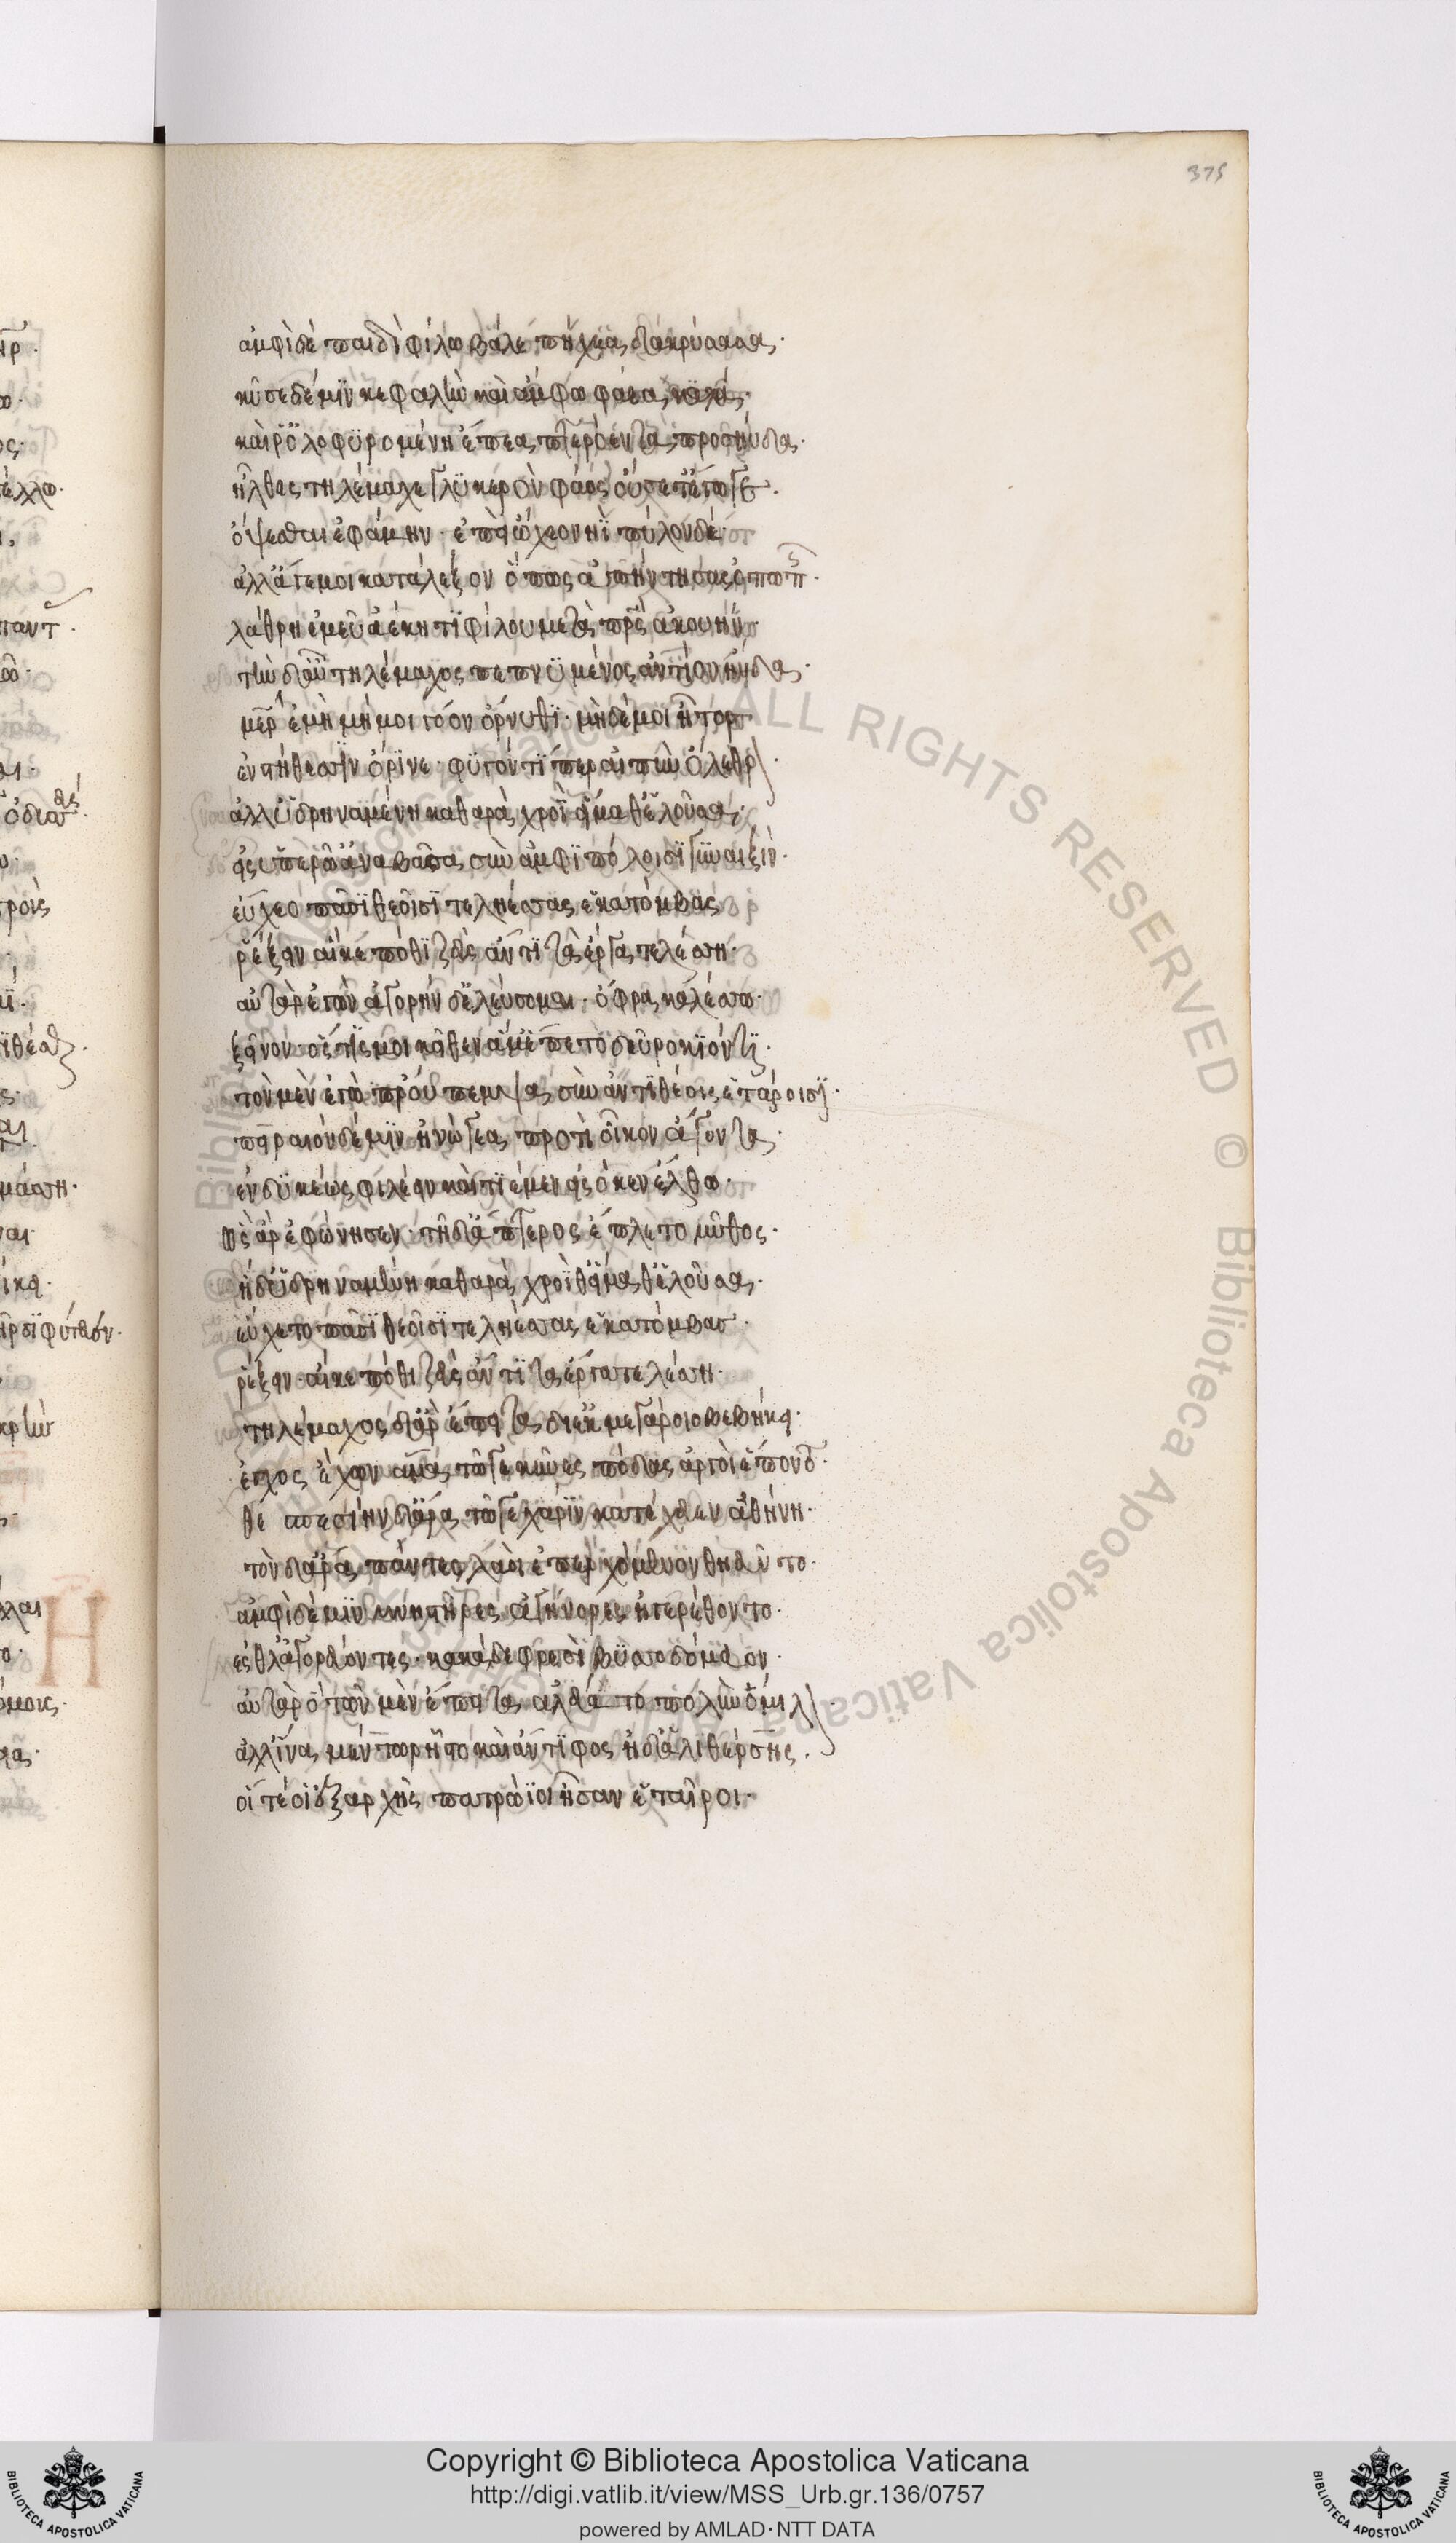 375
ἀμφὶ δὲ παιδὶ φίλω βάλε πήχεα δακρύσασα·
κῦσε δέ μϊν κεφαλὴν καὶ ἄμφω φάεα καλά·
καί ῥ' ὀλοφϋρομένη ἔπεα πτερόεντα προσηύδα·
ἦλθες τηλέμαχε γλϋκερὸν φάος οὔ σ' ἔτ' ἔγωγε·
ὄψεσθαι ἐφάμην· ἐπεὶ ὤχεο νηῒ πύλονδε·
ἀλλ' ἄγε μοι κατάλεξον ὅπως ἀπήντησας ὀπωπῆς·
λάθρη ἐμεῦ ἀέκητϊ φίλου μετὰ πρς ἀκουήν
τὴν δ' αὖ τηλέμαχος πεπνϋμένος ἀντίον ηὔδα·
μῆρ ἐμὴ μή μοι γόον ὄρνυθϊ· μηδέ μοι ἦτορ
ἐν στήθεσσϊν ὄρϊνε· φϋγόντϊ περ αἰπὺν ὄλεθρ·
ἀλλ' ὑδρηναμένη καθαρὰ χροῒ εἵμαθ' ἑλοῦσα·
εἰς ὑπερῶ' ἀναβᾶσα σὺν ἀμφϊπόλοισϊ γϋναιξίν·
εὔχεο πᾶσϊ θεοῖσϊ τεληέσσας ἑκατόμβας
ῥέξειν αἴ κέ ποθϊ ζεὺς ἄντϊτα ἔργα τελέσση·
αὐτὰρ ἐγὼν ἀγορὴν δ' ἐλεύσομαι· ὄφρα καλέσσω·
ξεῖνον· ὅς τϊς μοι κεῖθεν ἅμ' ἕπετο δεῦρο κϊόντϊ·
τὸν μὲν ἐγὼ προὔπεμψα σὺν ἀντϊθέοις ἑτάροισϊ·
πείραιον δέ μϊν ἠνώγεα προτὶ οἶκον ἄγοντα·
ἐνδϋκέως φιλέειν καὶ τϊέμεν εἰς ὅ κεν ἔλθω·
ὣς ἄρ' ἐφώνησεν· τῆ δ' ἄπτερος ἔπλετο μῦθος·
ἡ δ' ὑδρηναμένη καθαρὰ χροῒ θ' εἵμαθ' ἑλοῦσα·
εὔχετο πᾶσϊ θεοῖσϊ τεληέσσας ἑκατόμβασ·
ῥέξειν· αἴ κε πόθι ζεὺς ἄντϊτα ἔργα τελέσση·
τηλέμαχος δ' ἄρ' ἔπειτα διὲκ μεγάροιο βεβήκει·
ἔγχος ἔχων ἅμα τῶ γε κύνες πόδας ἀργοὶ ἕποντ·
θε πεσίην δ' ἄρα τῶ γε χάρϊν κατέχευεν ἀθήνη·
τὸν δ' ἄρα πάντες λαοὶ ἐπερχόμενον θηεῦντο·
ἀμφὶ δέ μϊν μνηστῆρες ἀγήνορες ἠγερέθοντο·
ἐσθλ' ἀγορεύοντες· κακὰ δὲ φρεσὶ βϋσσοδόμευον·
αὐτὰρ ὁ τῶν μὲν ἔπειτα ἀλεύατο πολὺν ὅμιλ·
ἀλλ' ἵνα μέντωρ ἧστο καὶ ἄντϊφος ἠδ' ἁλϊθέρσης·
οἵ τέ οἱ ἐξ ἀρχῆς πατρώϊοι ἦσαν ἑταῖροι·
ALL RIGHTS RESERVED © Biblioteca Apostolica Vaticana
Copyright © Biblioteca Apostolica Vaticana
http://digi.vatlib.it/view/MSS_Urb.gr.136/0757
powered by AMLAD·NTT DATA
BIBLIOTECA APOSTOLICA VATICANA
BIBLIOTECA APOSTOLICA VATICANA